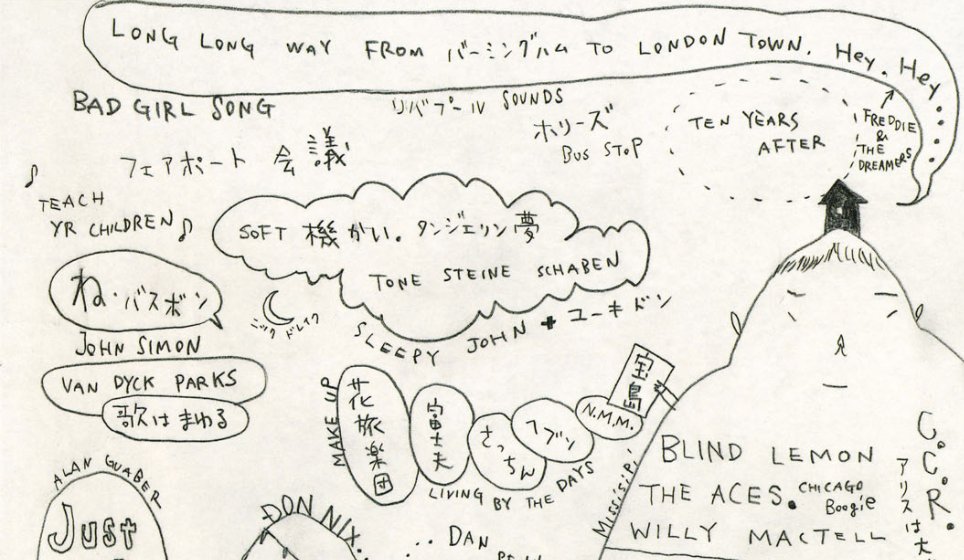 LONG LONG WAY FROM バーミングハム TO LONDON TOWN. Hey, Hey.....
BAD GIRL SONG
リバプール SOUNDS
ホリーズ
BUS STOP
TEN YEARS
AFTER
FREDDIE
&
THE
DREAMERS
フェアポート 会議
TEACH
YR CHILDREN
SOFT 機かい。タンジェリン夢
TONE STEINE SCHABEN
ね・バスボン
ニック ドレイク
SLEEPY JOHN + ユーキドン
JOHN SIMON
VAN DYCK PARKS
歌はまわる
MAKE UP
花旅楽団
富士夫
さっちん
ヘブン
N.M.M.
宝島
LIVING BY THE DAYS
Mississipi
BLIND LEMON
THE ACES.
CHICAGO
Boogie
WILLY MACTELL
C.C.R.
アリスは大
ALAN GUABER
Just
DON NIX...
DAN